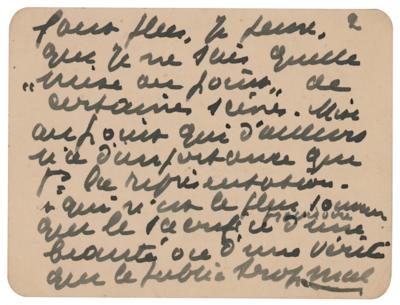 sous plus, je pense, 2
que je ne sais quelle
"mise au point" de
certaines scènes. Mise
au point qui d'ailleurs
n'a d'importance que
pr la représentation.
& qui n'est le plus souvent
que le sacrifice d'une
beauté ou d'une vérité
que le public trop mal